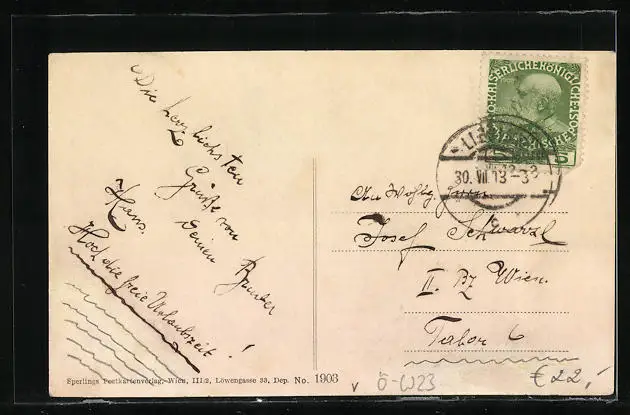 Die herzlichsten
Grüße von
Deinen Bruder
Hans.
Hoch die freie Urlaubszeit!
KAISERLICHEKÖNIGLICHE
5
30. VII 13-3
An Wohlg.
Josef Schwarzl
II. Bz Wien.
Tabor 6
Sperlings Postkartenverlag, Wien, III/2, Löwengasse 33, Dep. No. 1903
v Ö-W23 €22,